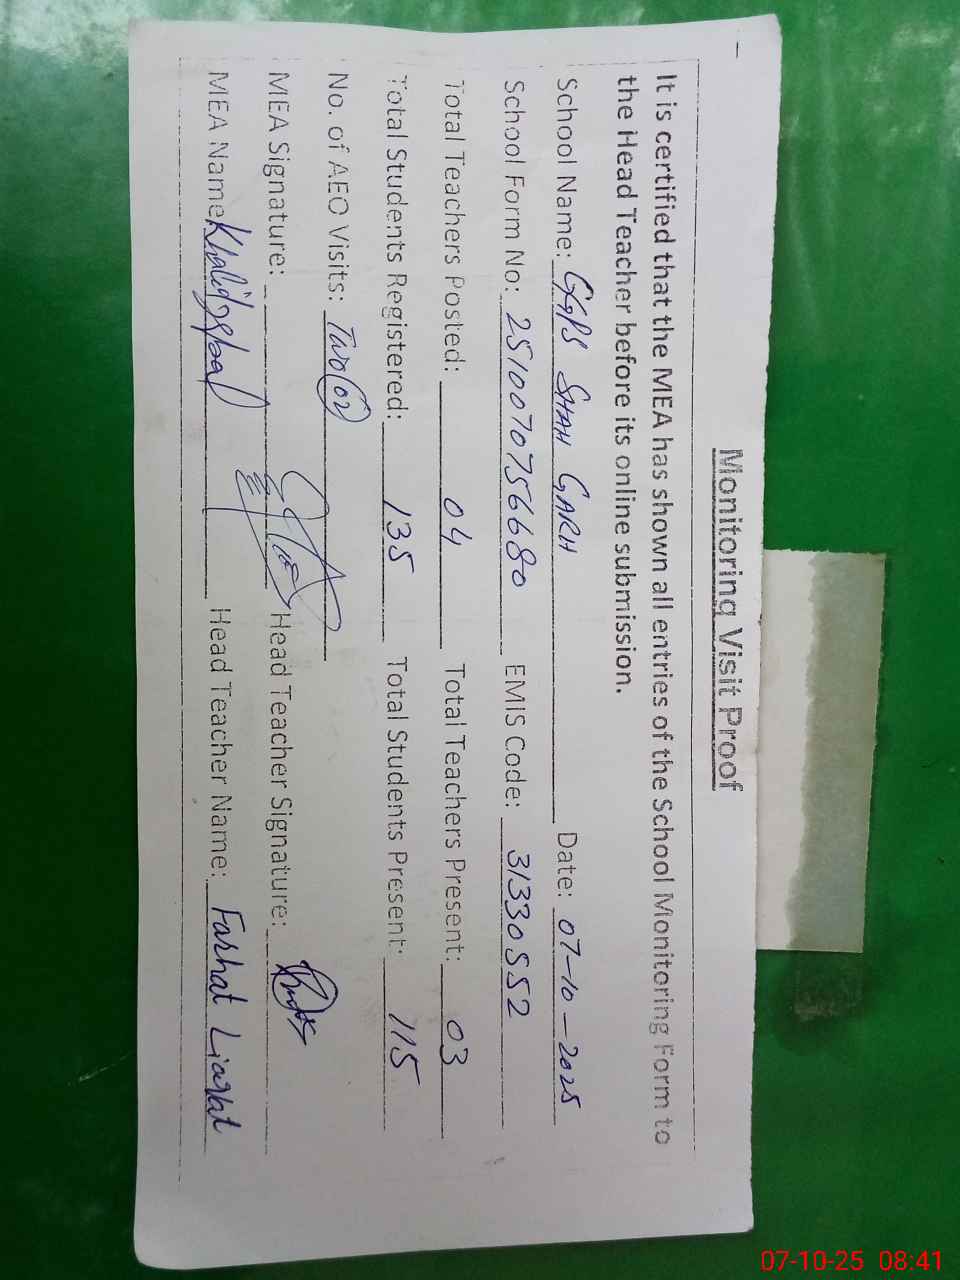 Monitoring Visit Proof
It is certified that the MEA has shown all entries of the School Monitoring Form to
the Head Teacher before its online submission.
School Name: GGPS SHAH GARH Date: 07-10-2025
School Form No: 2510070756680 EMIS Code: 31330552
Total Teachers Posted: 04 Total Teachers Present: 03
Total Students Registered: 135 Total Students Present: 115
No. of AEO Visits: Two (02)
MEA Signature: Head Teacher Signature:
MEA Name: Khalid Iqbal Head Teacher Name: Farhat Liaqat
07-10-25 08:41